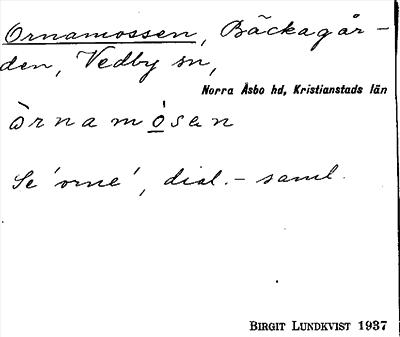 Ornamossen, Bäckagår-
den, Vedby sn,
Norra Åsbo hd, Kristianstads län
òrnamósen
Se 'orne', dial.-saml.
BIRGIT LUNDKVIST 1937